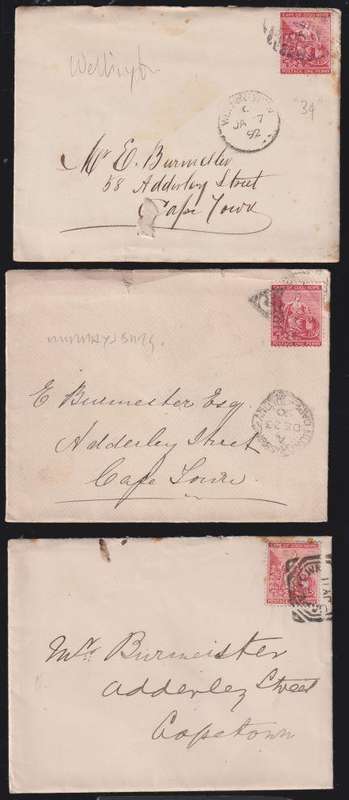 CAPE OF GOOD HOPE
POSTAGE ONE PENNY
Wellington
"34"
C
JA 7
92
Mr E. Burmester
58 Adderley Street
Cape Town
CAPE OF GOOD HOPE
POSTAGE ONE PENNY
E Burmester Esq.
Adderley Street
Cape Town
A
DE 23
CAPE OF GOOD HOPE
Mr. Burmeister
Adderley Street
Capetown